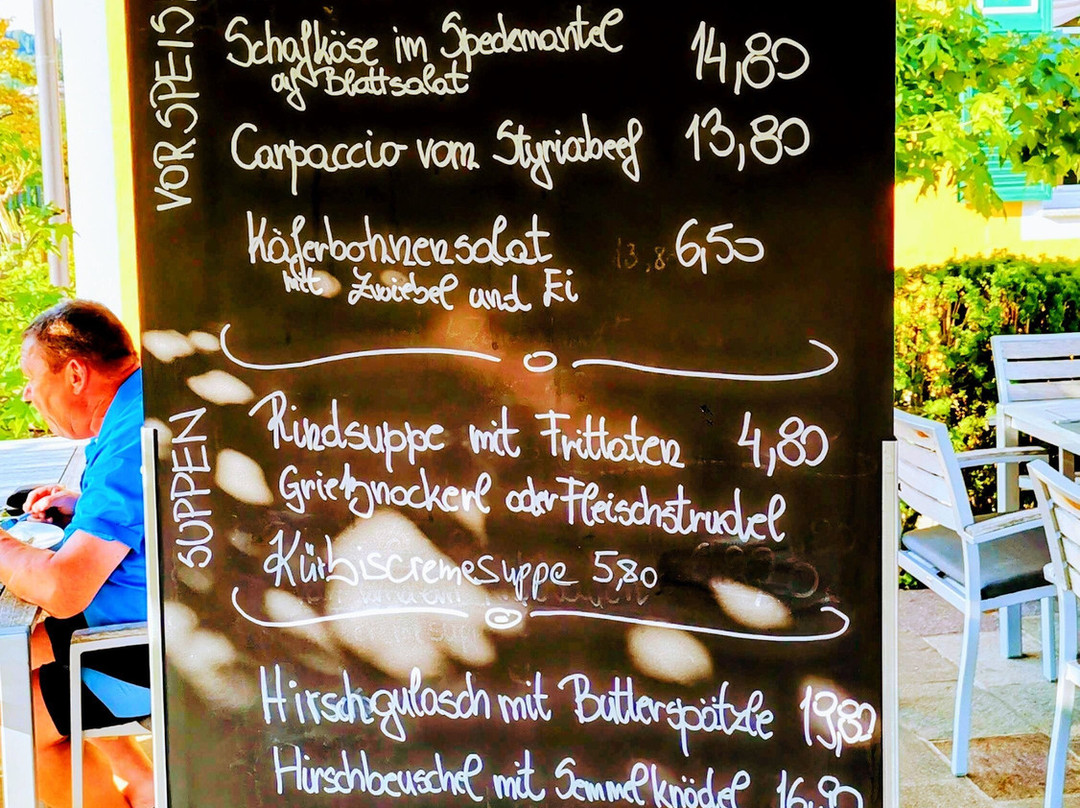 VORSPEIS
Schafkäse im Speckmantel 14,80
auf Blattsalat
Carpaccio vom Styriabeef 13,80
Käferbohnensalat 6,50
mit Zwiebel und Ei
SUPPEN
Rindsuppe mit Frittaten 4,80
Grießnockerl oder Fleischstrudel
Kürbiscremesuppe 5,80
Hirschgulasch mit Butterspätzle 19,80
Hirschbeuschel mit Semmelknödel 16,80